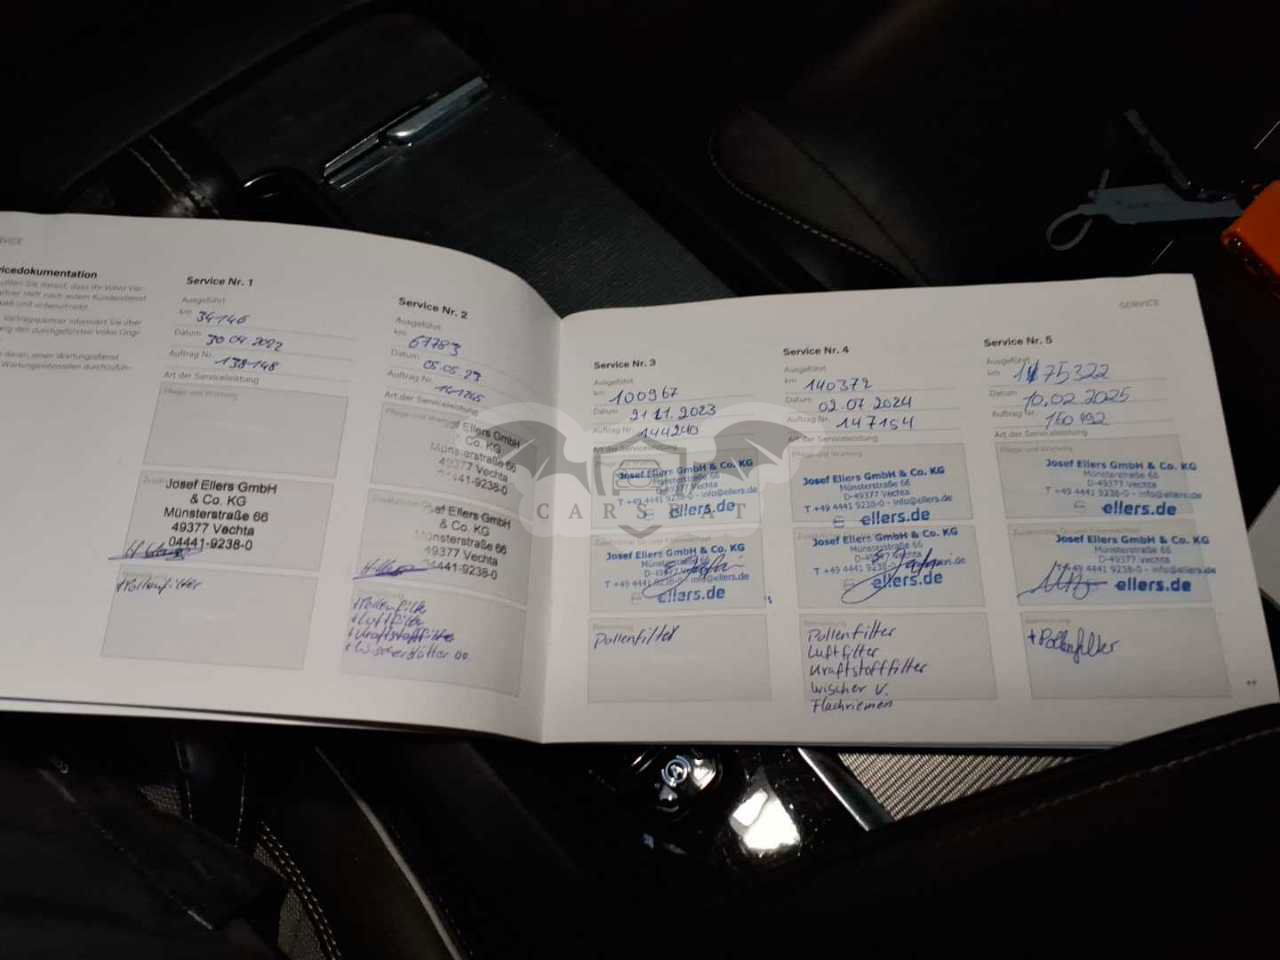 SERVICE
Service Nr. 1
Ausgeführt
km 34146
Datum 30 04 2022
Auftrag Nr. 138148
Art der Serviceleistung
Pflege und Wartung
Josef Ellers GmbH
& Co. KG
Münsterstraße 66
49377 Vechta
04441-9238-0
+Pollenfilter
Service Nr. 2
Ausgeführt
km 67783
Datum 05.05 23
Auftrag Nr.
Art der Serviceleistung
Ellers GmbH
& Co. KG
Münsterstraße 66
49377 Vechta
41-9238-0
sef Ellers GmbH
& Co. KG
Münsterstraße 66
49377 Vechta
4441-9238-0
+Pollenfilter
+Luftfilter
+Kraftstofffilter
+Wischerblätter
Service Nr. 3
Ausgeführt
km 100967
Datum 21 11. 2023
Auftrag Nr. 144240
Art der Serviceleistung
Josef Ellers GmbH & Co. KG
Münsterstraße 66
D-49377 Vechta
T +49 4441 9238-0 - info@ellers.de
ellers.de
CARSBAT
Josef Ellers GmbH & Co. KG
Münsterstraße 66
D-49377 Vechta
T +49 4441 9238-0 - info@ellers.de
ellers.de
Pollenfilter
SERVICE
Service Nr. 4
Ausgeführt
km 140372
Datum 02.07 2024
Auftrag Nr. 147154
Art der Serviceleistung
Pflege und Wartung
Josef Ellers GmbH & Co. KG
Münsterstraße 66
D-49377 Vechta
T +49 4441 9238-0 - info@ellers.de
ellers.de
Josef Ellers GmbH & Co. KG
Münsterstraße 66
D-49377 Vechta
T +49 4441 9238-0
ellers.de
Pollenfilter
Luftfilter
Kraftstofffilter
Wischer v.
Flachriemen
Service Nr. 5
Ausgeführt
km 175322
Datum 10.02.2025
Auftrag Nr. 150492
Art der Serviceleistung
Pflege und Wartung
Josef Ellers GmbH & Co. KG
Münsterstraße 66
D-49377 Vechta
T +49 4441 9238-0 - info@ellers.de
ellers.de
Josef Ellers GmbH & Co. KG
Münsterstraße 66
D-49377 Vechta
T +49 4441 9238-0 - info@ellers.de
ellers.de
+Pollenfilter